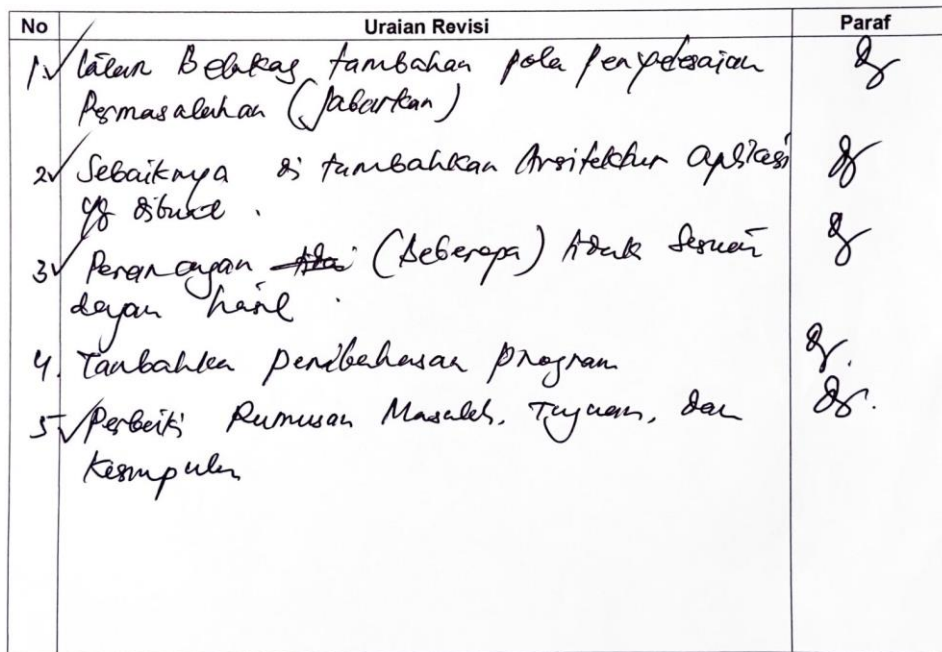 No Uraian Revisi Paraf
1. Latar Belakag tambahan pola penyelesaian
Permasalahan (Jabarkan)
2 Sebaiknya di tambahkan Arsitektur aplikasi
yg dibuat .
3 Perancangan (Beberapa) tidak sesuai
dengan hasil .
4. Tambahka pembahasan program
5 Perbaiki Rumusan Masalah, Tujuan, dan
Kesimpulan